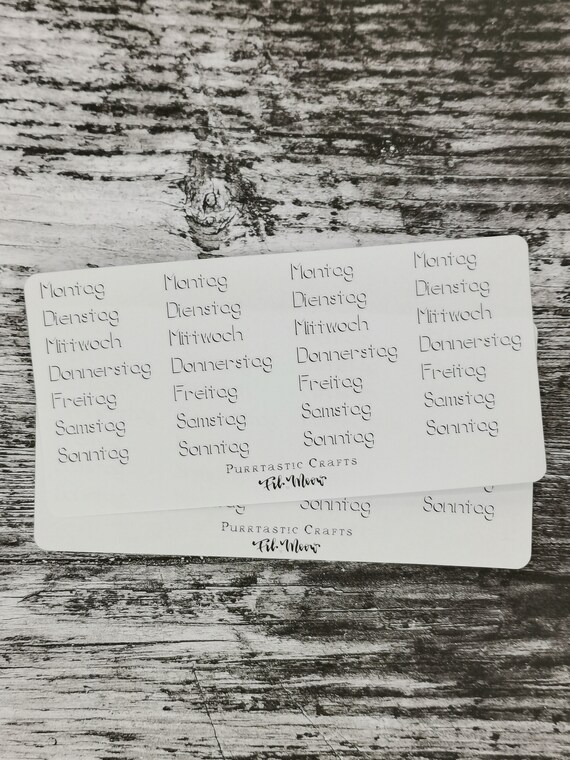 Montag Montag Montag Montag
Dienstag Dienstag Dienstag Dienstag
Mittwoch Mittwoch Mittwoch Mittwoch
Donnerstag Donnerstag Donnerstag Donnerstag
Freitag Freitag Freitag Freitag
Samstag Samstag Samstag Samstag
Sonntag Sonntag Sonntag Sonntag
Purrtastic Crafts
Fil-Meow
Sonntag Sonntag
Purrtastic Crafts
Fil-Meow